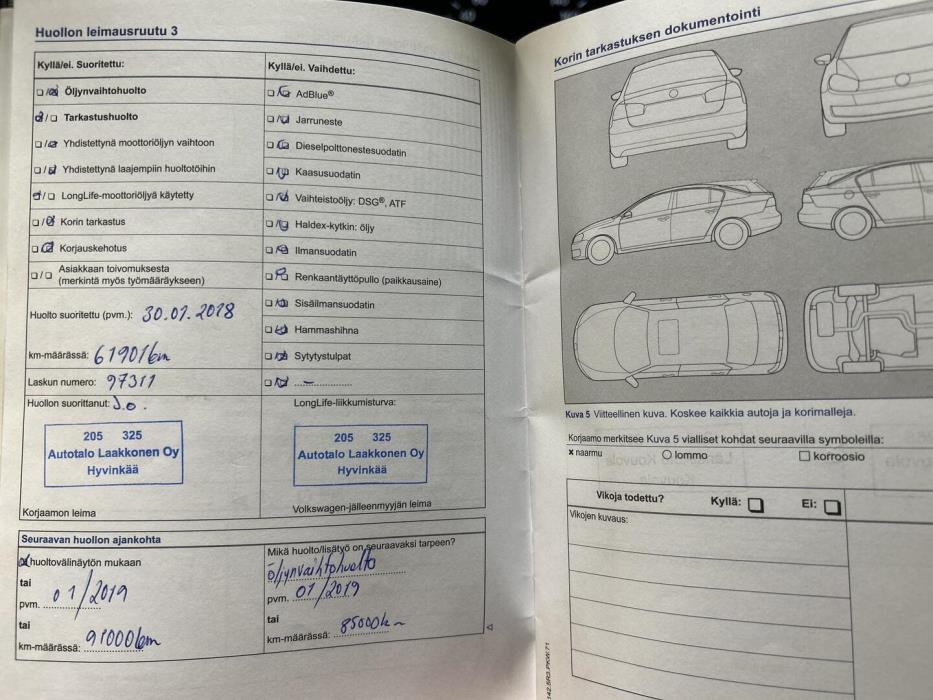 Huollon leimausruutu 3
Kyllä/ei. Suoritettu:
Öljynvaihtohuolto
Tarkastushuolto
Yhdistettynä moottoriöljyn vaihtoon
Yhdistettynä laajempiin huoltotöihin
LongLife-moottoriöljyä käytetty
Korin tarkastus
Korjauskehotus
Asiakkaan toivomuksesta
(merkintä myös työmääräykseen)
Huolto suoritettu (pvm.): 30.01.2018
km-määrässä: 61901km
Laskun numero: 97311
Huollon suorittanut: J.o.
205 325
Autotalo Laakkonen Oy
Hyvinkää
Korjaamon leima
Kyllä/ei. Vaihdettu:
AdBlue®
Jarruneste
Dieselpolttonestesuodatin
Kaasusuodatin
Vaihteistoöljy: DSG®, ATF
Haldex-kytkin: öljy
Ilmansuodatin
Renkaantäyttöpullo (paikkausaine)
Sisäilmansuodatin
Hammashihna
Sytytystulpat
LongLife-liikkumisturva:
205 325
Autotalo Laakkonen Oy
Hyvinkää
Volkswagen-jälleenmyyjän leima
Seuraavan huollon ajankohta
huoltovälinäytön mukaan
tai
pvm. 01/2019
tai
km-määrässä: 91000km
Mikä huolto/lisätyö on seuraavaksi tarpeen?
öljynvaihtohuolto
pvm. 01/2019
tai
km-määrässä: 85000km
Korin tarkastuksen dokumentointi
Kuva 5 Viitteellinen kuva. Koskee kaikkia autoja ja korimalleja.
Korjaamo merkitsee Kuva 5 vialliset kohdat seuraavilla symboleilla:
x naarmu
lommo
korroosio
Vikoja todettu? Kyllä: Ei:
Vikojen kuvaus:
142.5R3.PKW.71